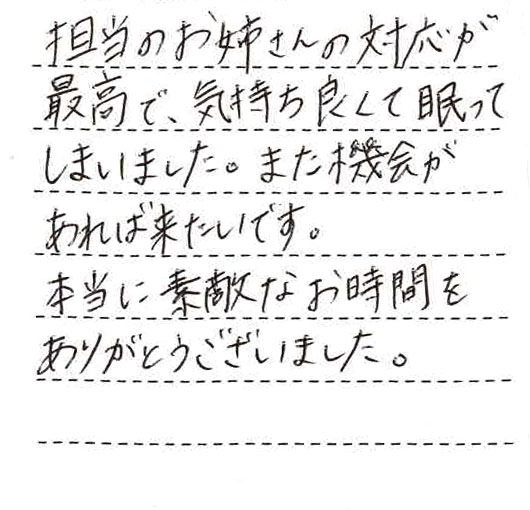 担当のお姉さんの対応が
最高で、気持ち良くて眠って
しまいました。また機会が
あれば来たいです。
本当に素敵なお時間を
ありがとうございました。